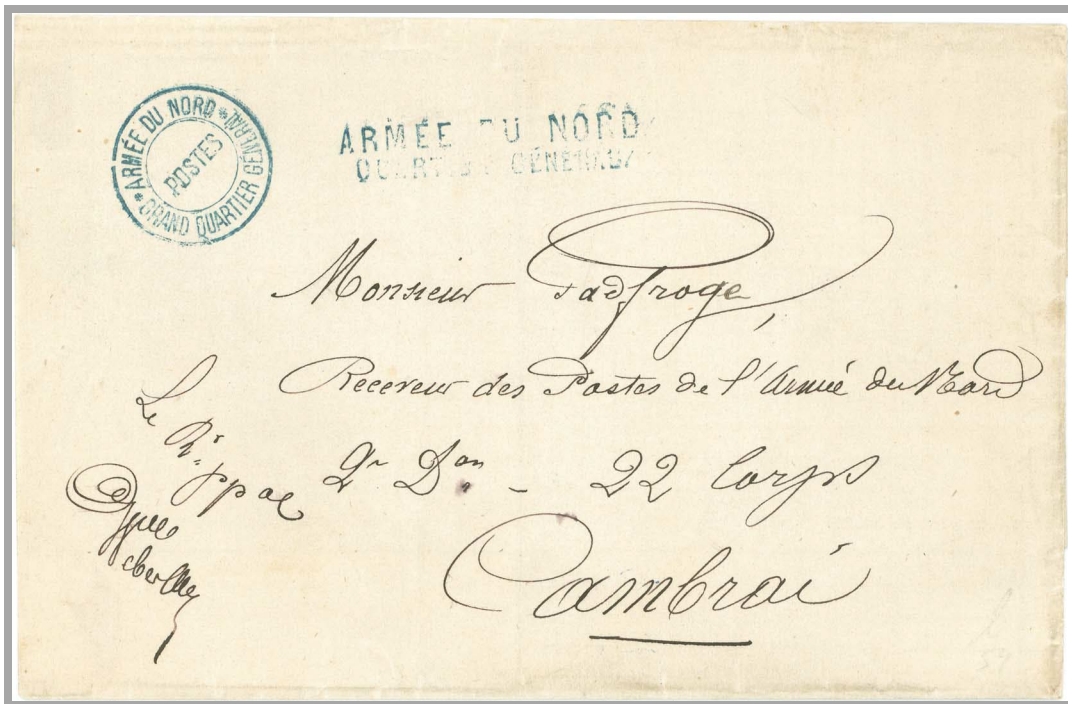 *ARMÉE DU NORD* GRAND QUARTIER GENERAL
POSTES
ARMÉE DU NORD
QUARTIER GÉNÉRAL
Monsieur
Receveur des Postes de l'Armée du Nord
2e Don - 22 Corps
Cambrai
Le Rr
ppal